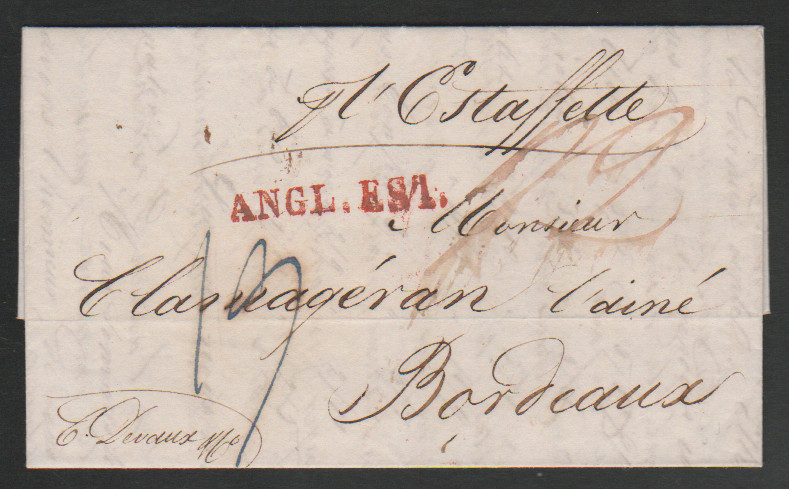 pr l'Estaffette
ANGL. EST.
Monsieur
Clamageran l'ainé
Bordeaux
C. Devaux